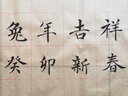 兔年吉祥
癸卯新春